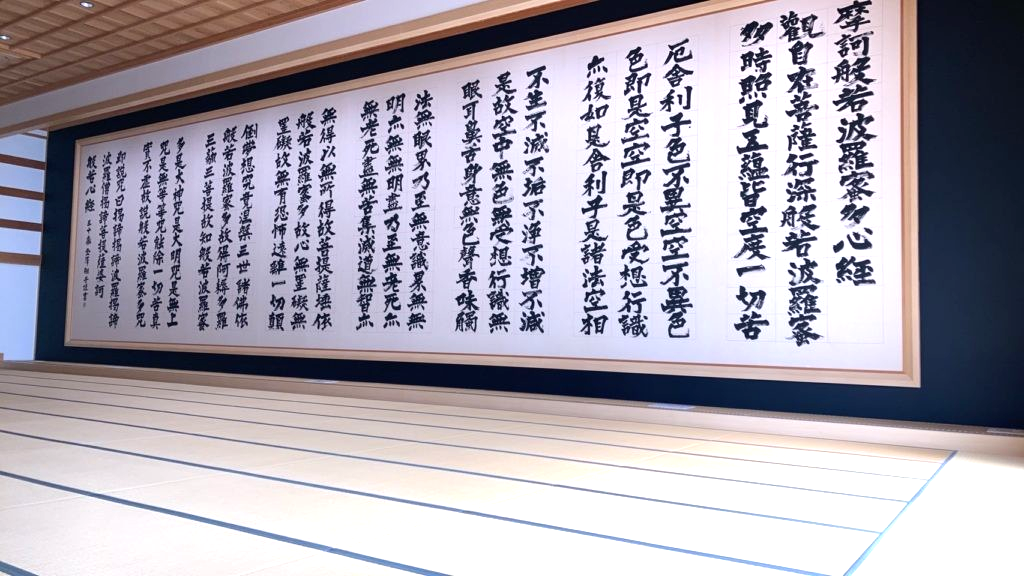 摩訶般若波羅蜜多心経
観自在菩薩行深般若波羅蜜
多時照見五蘊皆空度一切苦
厄舎利子色不異空空不異色
色即是空空即是色受想行識
亦復如是舎利子是諸法空相
不生不滅不垢不浄不増不減
是故空中無色無受想行識無
眼耳鼻舌身意無色声香味觸
法無眼界乃至無意識界無無
明亦無無明盡乃至無老死亦
無老死盡無苦集滅道無智亦
無得以無所得故菩提薩埵依
般若波羅蜜多故心無罣礙無
罣礙故無有恐怖遠離一切顛
倒夢想究竟涅槃三世諸佛依
般若波羅蜜多故得阿耨多羅
三藐三菩提故知般若波羅蜜
多是大神咒是大明咒是無上
咒是無等等咒能除一切苦真
實不虚故説般若波羅蜜多咒
即説咒曰揭諦揭諦波羅揭諦
波羅僧揭諦菩提薩婆訶
般若心経